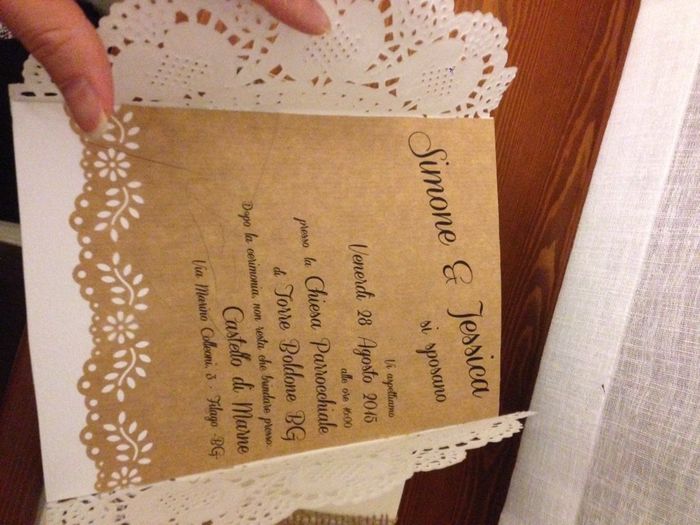 Simone & Jessica
si sposano
Vi aspettiamo
Venerdì 28 Agosto 2015
alle ore 16:00
presso la Chiesa Parrocchiale
di Torre Boldone BG
Dopo la cerimonia, non resta che brindare presso:
Castello di Marne
Via Marino Colleoni, 3 - Filago BG